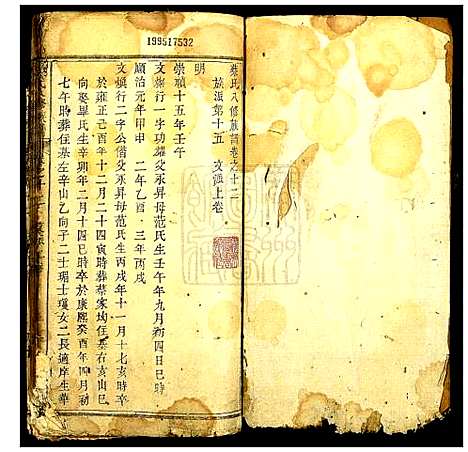 199517532
蔡氏八修族譜卷之十二
族派第十五 文派上卷
明
崇禎十五年壬午
文燦行一字功雄父承昇母范氏生壬午年九月初四日巳時
順治元年甲申 二年乙酉 三年丙戌
文燦行二字公偕父承昇母范氏生丙戌年十一月十七亥時卒
於雍正己酉年十二月二十四寅時葬蔡家坳任基右亥山巳
向娶畢氏生辛卯年二月十四巳時卒於康熙癸酉年四月初
七午時葬任基左辛山乙向子二士瑂士瓊女二長適岸生華